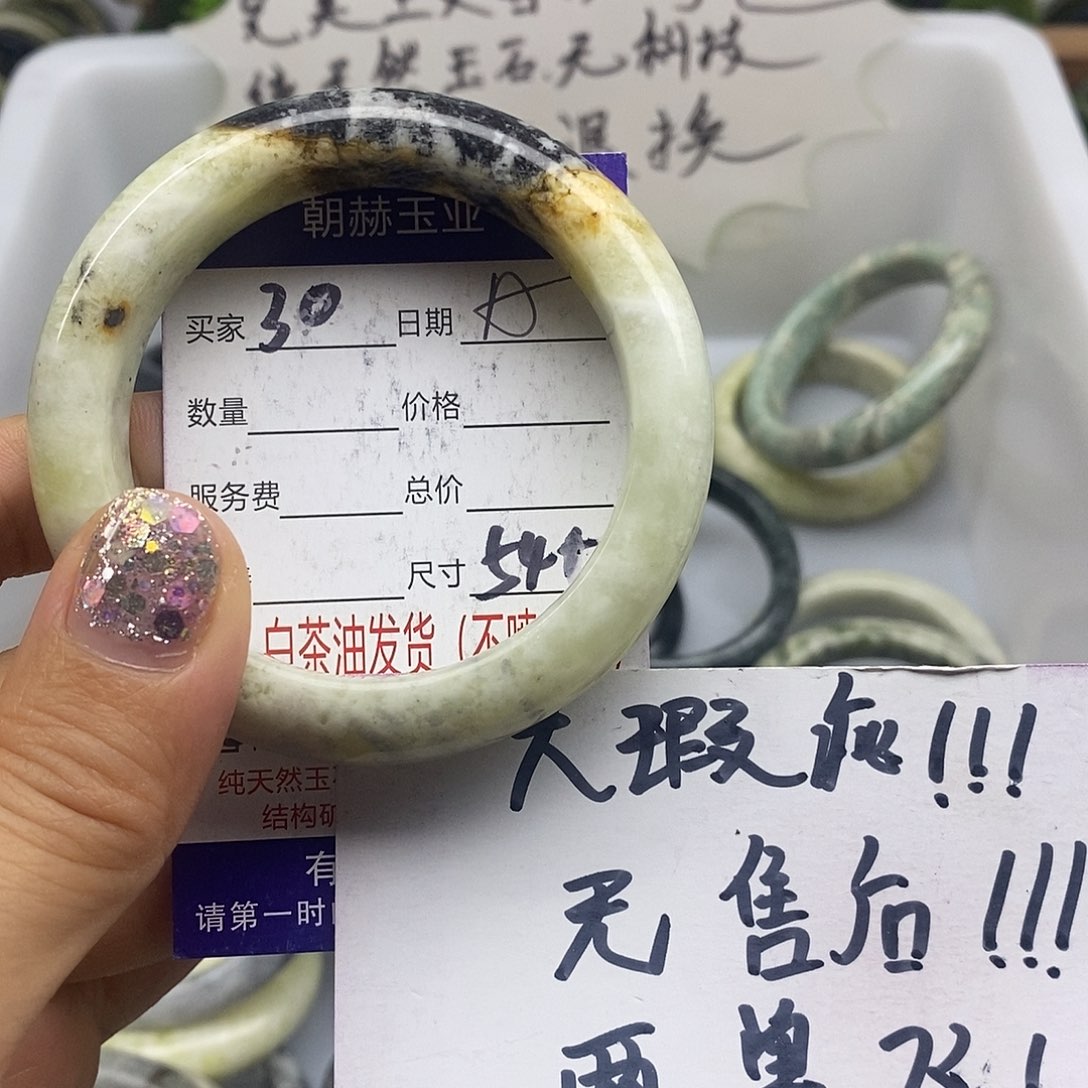 玉石.无科技
退换
朝赫玉业
买家 30 日期 A
数量 价格
服务费 总价
尺寸 54+
白茶油发货(不喷
纯天然玉
结构矿
有
请第一时
大瑕疵!!!
无售后!!!
两单飞!